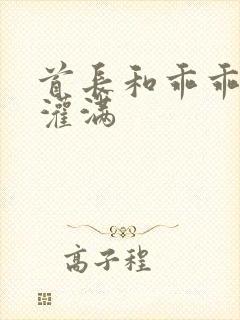 首长和乖乖
灌满
高子程